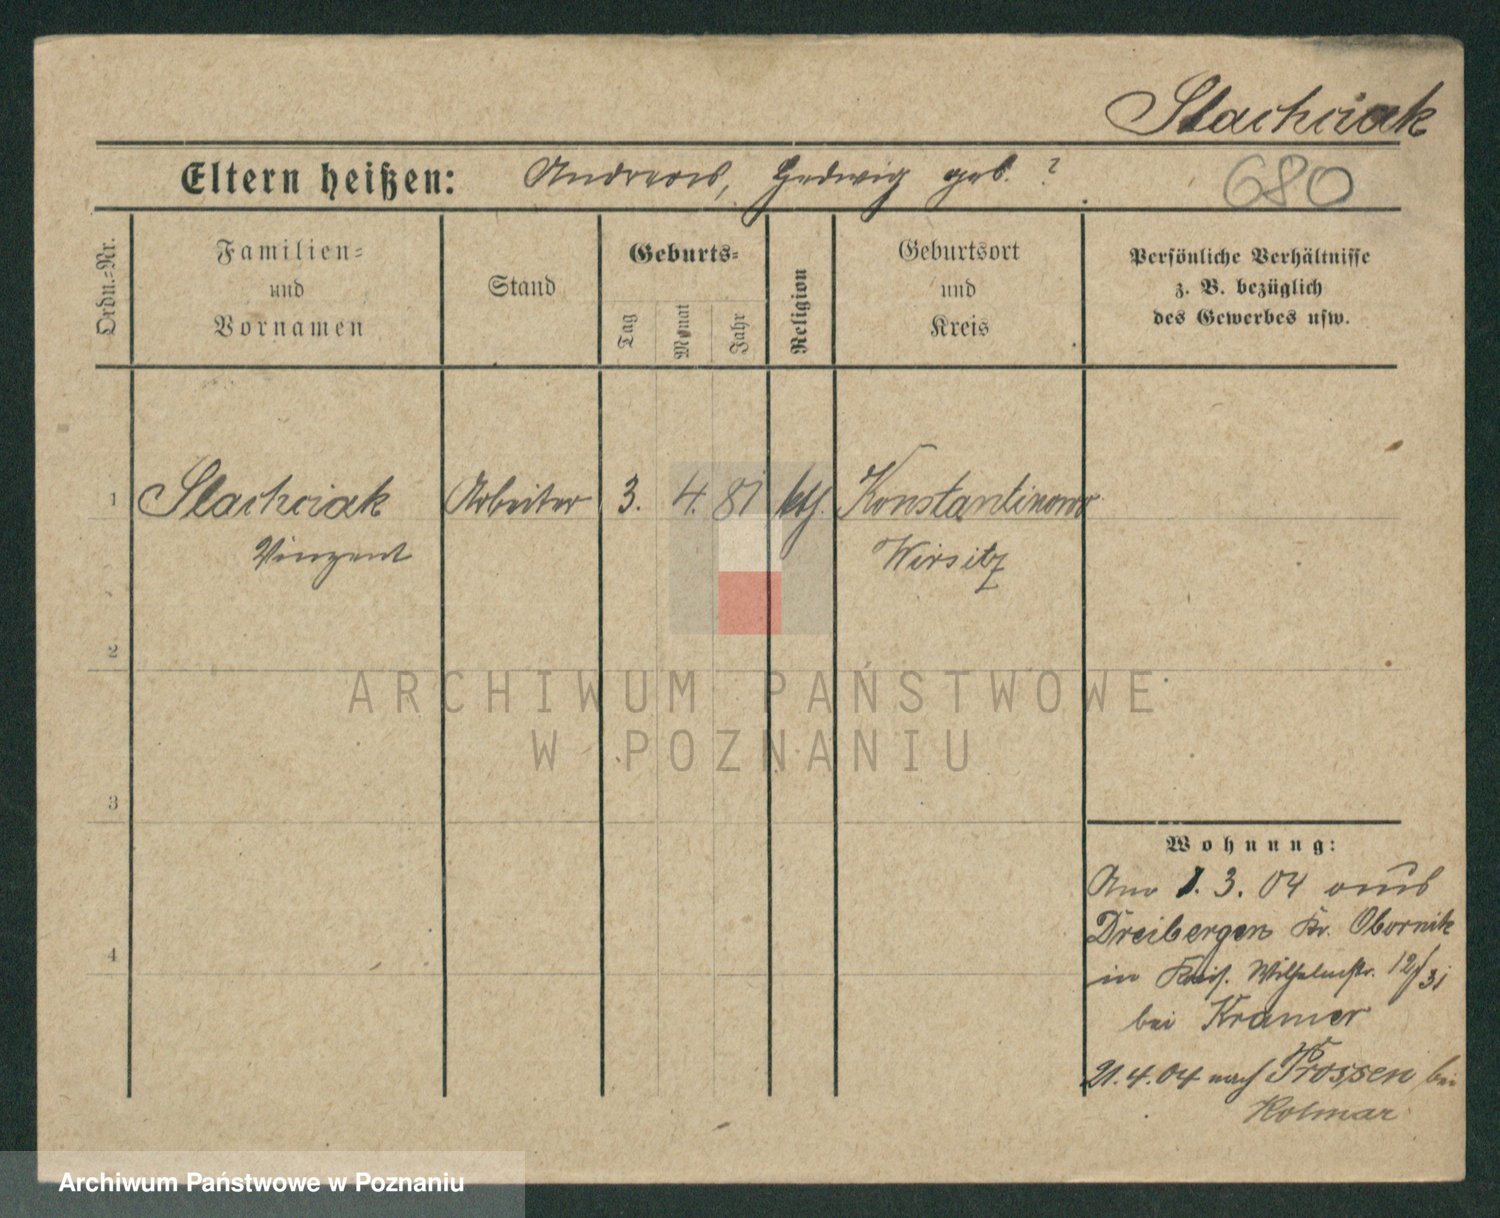 Slachciak
Eltern heißen: Andreas, Hedwig geb. ?
680
Ordn.=Nr.
Familien=
und
Vornamen
Stand
Geburts=
Tag
Monat
Jahr
Religion
Geburtsort
und
Kreis
Persönliche Verhältnisse
z. B. bezüglich
des Gewerbes usw.
1 Slachciak Arbeiter 3. 4. 81 kth. Konstantinowo
Vinzent Wirsitz
2
ARCHIWUM PAŃSTWOWE
W POZNANIU
3
Wohnung:
Am 1. 3. 04 aus
Dreibergen Kr. Obornik
4
in Kais. Wilhelmstr. 12/31
bei Kramer
21.4.04 nach Prossen bei
Kolmar
Archiwum Państwowe w Poznaniu